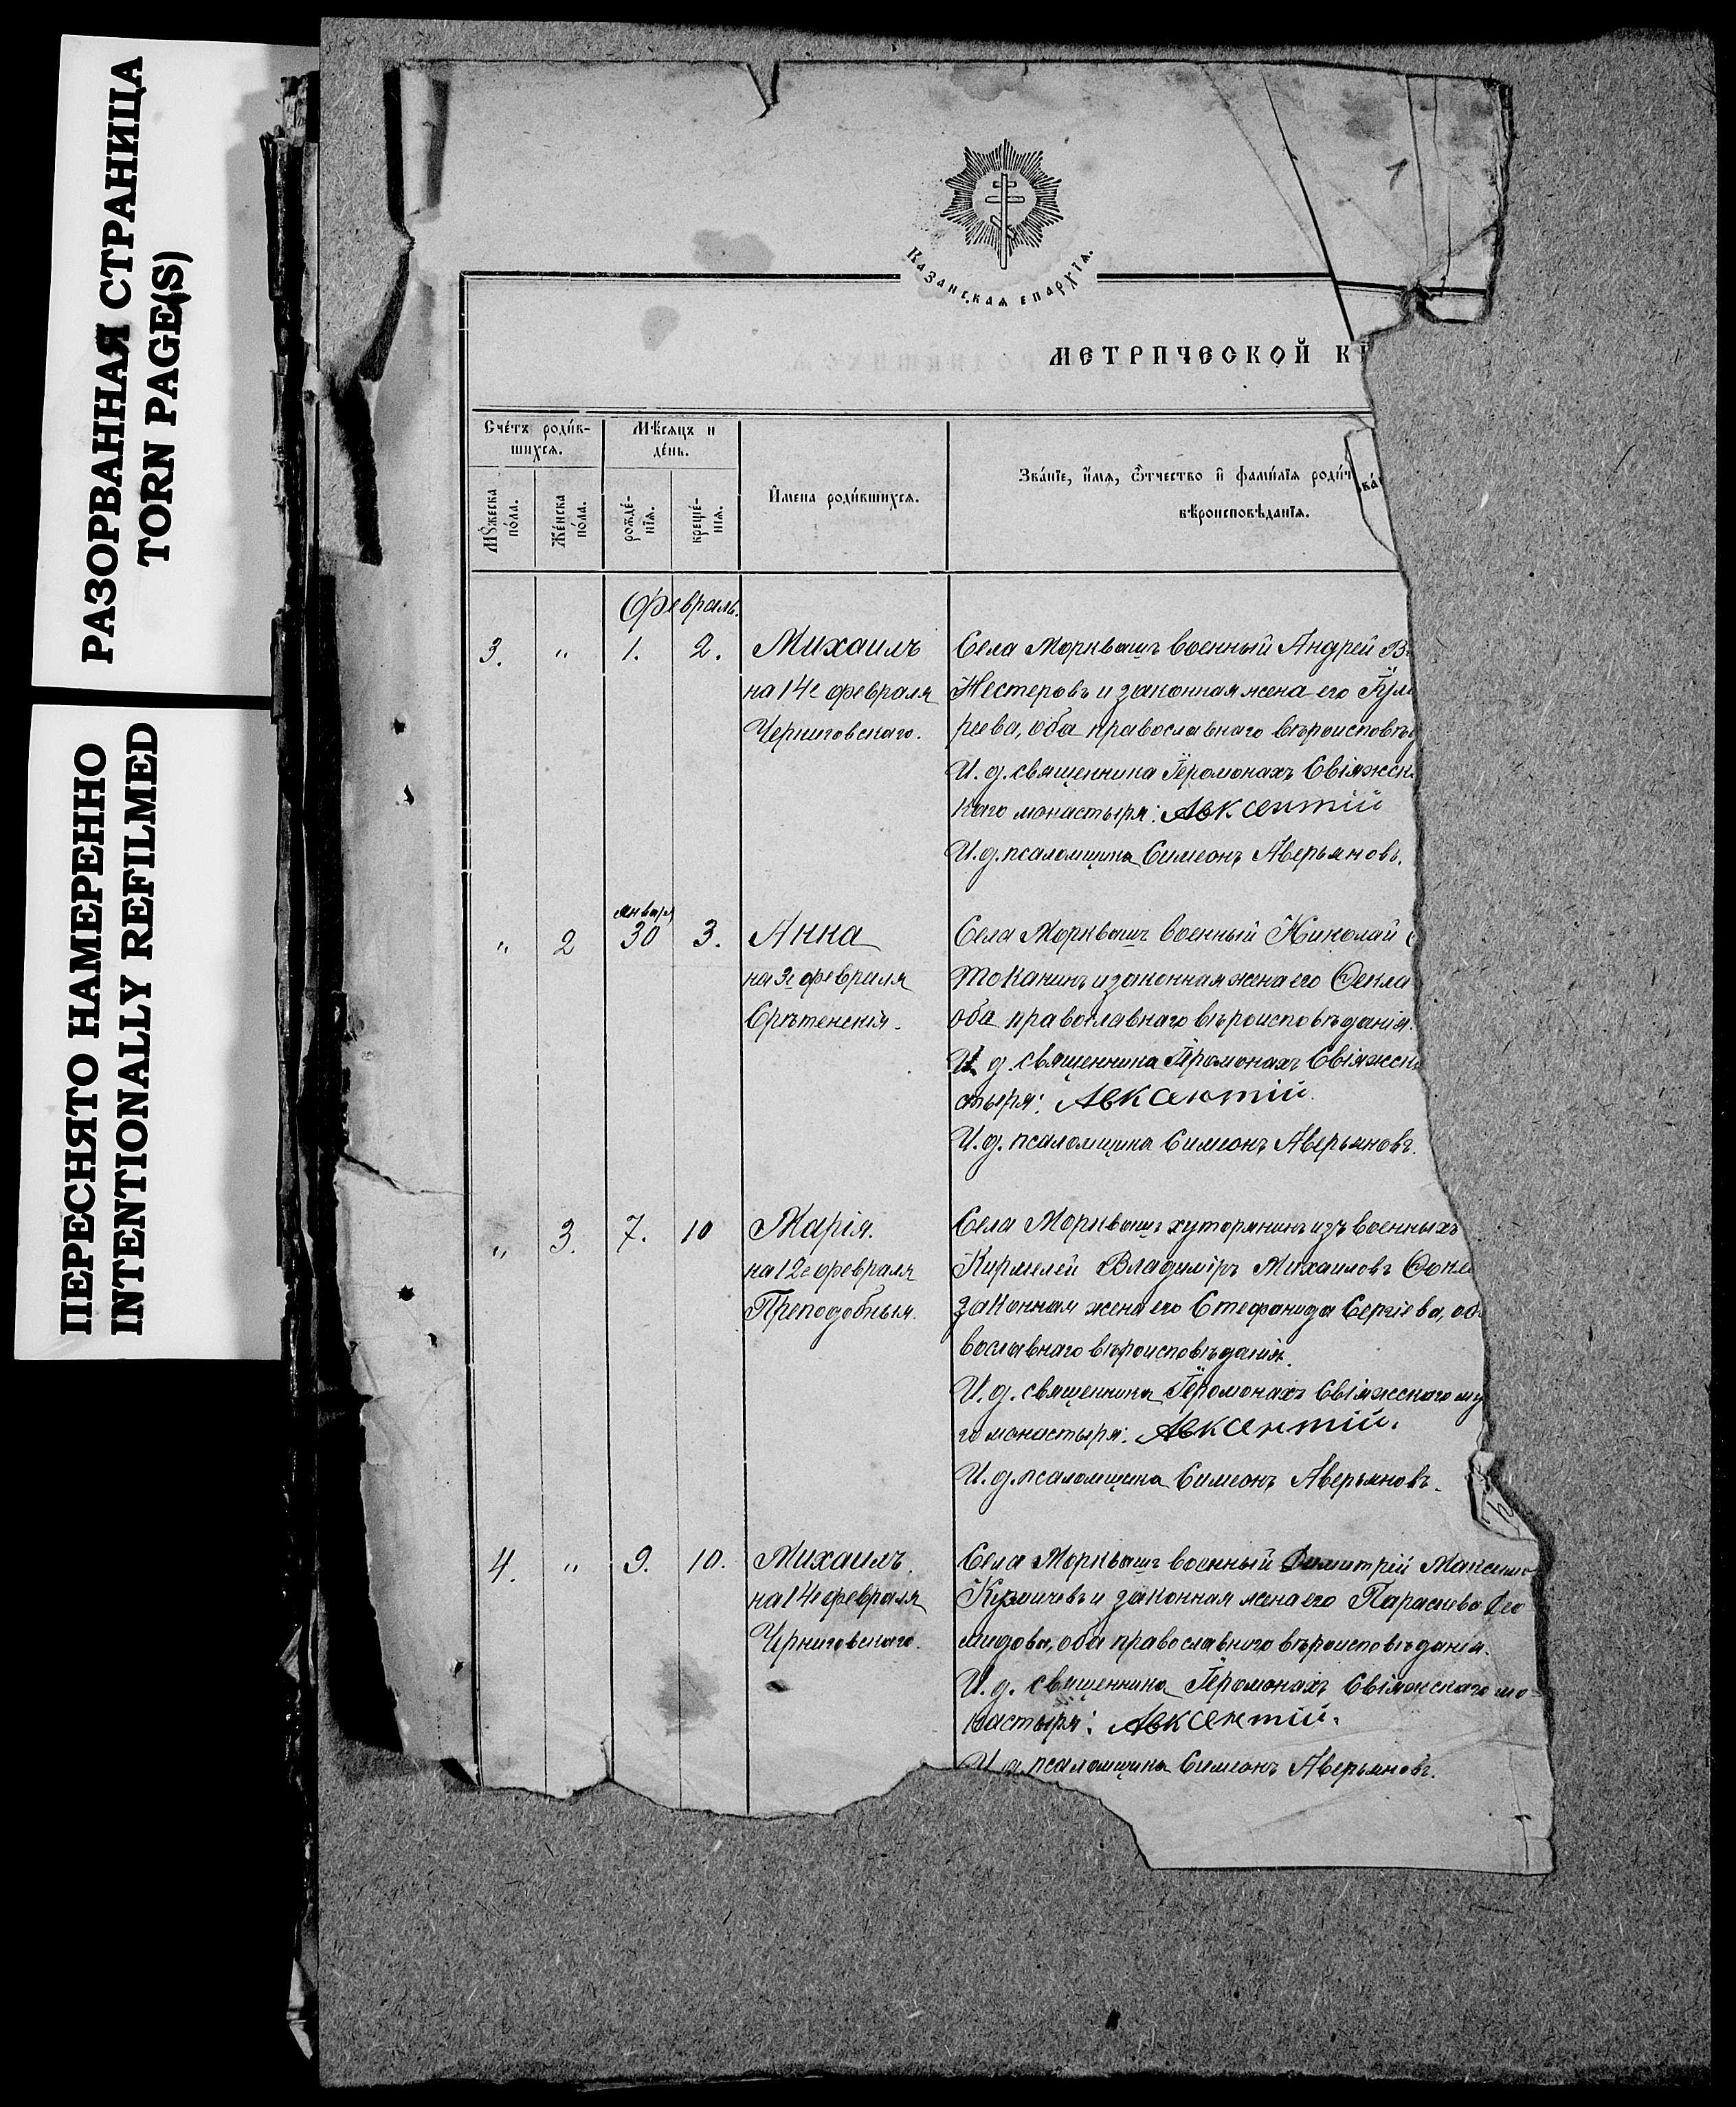 РАЗОРВАННАЯ СТРАНИЦА
TORN PAGE(S)
ПЕРЕСНЯТО НАМЕРЕННО
INTENTIONALLY REFILMED
1
Казанская епархїя.
МЕТРИЧЕСКОЙ К
Сче́тъ роди́в-
шихся.
Мѣ́сяцъ и
де́нь.
Мꙋ́жеска
по́ла.
Же́нска
по́ла.
рожде́-
нїя.
креще́-
нїя.
И҆мена роди́вшихся.
Зва́нїе, и҆́мя, ѻ҆́тчество и҆ фами́лїя роди́т
вѣроисповѣ́данїя.
Февраль.
3. " 1. 2. Михаилъ
на 14е февраля
Черниговскаго.
Села Морквашъ военный Андрей В
Нестеровъ и законная жена его Іул
рьева, оба православнаго вѣроисповѣд
И. д. священника Іеромонахъ Свіяжск
каго монастыря: Авксентій
И. д. псаломщика Симеонъ Аверьяновъ.
" 2 января 30 3. Анна
на 3е февраля
Срѣтенскія.
Села Морквашъ военный Николай
Токанинъ и законная жена его Фекла
оба православнаго вѣроисповѣданія.
И. д. священника Іеромонахъ Свіяжск
стыря: Авксентій.
И. д. псаломщика Симеонъ Аверьяновъ.
" 3. 7. 10 Марія.
на 12е февраля
Преподобныя.
Села Морквашъ хуторянинъ изъ военныхъ
Кирмелей Владиміръ Михаиловъ
законная жена его Стефанида Сергіева, об
вославнаго вѣроисповѣданія.
И. д. священника Іеромонахъ Свіяжскаго му
го монастыря: Авксентій.
И. д. псаломщика Симеонъ Аверьяновъ.
4. " 9. 10. Михаилъ.
на 14е февраля
Черниговскаго.
Села Морквашъ военный Димитрій Максимо
Кузмичевъ и законная жена его Параскева Дио
мидова, оба православнаго вѣроисповѣданія.
И. д. священника Іеромонахъ Свіяжскаго мо-
настыря: Авксентій.
И. д. псаломщика Симеонъ Аверьяновъ.